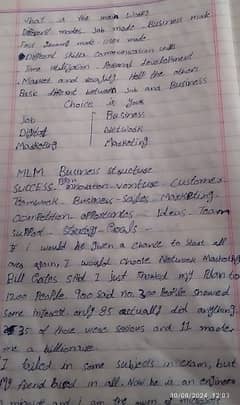 What is the main works
Different modes Job mode. Business mode
Different skills communication skills
Time Utilization. Personal development
Market and
Basic different between Job and Business
Choice is your
Job Business
Digital Network
Marketing Marketing
MLM Business Structure
SUCCESS. Innovation venture customer
Teamwork Business Sales Marketing
Competition opportunities Ideas Team
support Strategy Goals
If i would be given a chance to start all
over again, I would choose Network Marketing
Bill Gates said I Just showed my plan to
1200 People. 900 said no. 300 People showed
Some interest only 85 actually did anything.
35 of those were serious and 11 made
me a billionaire
I failed in some subjects in exam, but
My friend passed in all. Now he is an engineer
10/08/2024 12:03